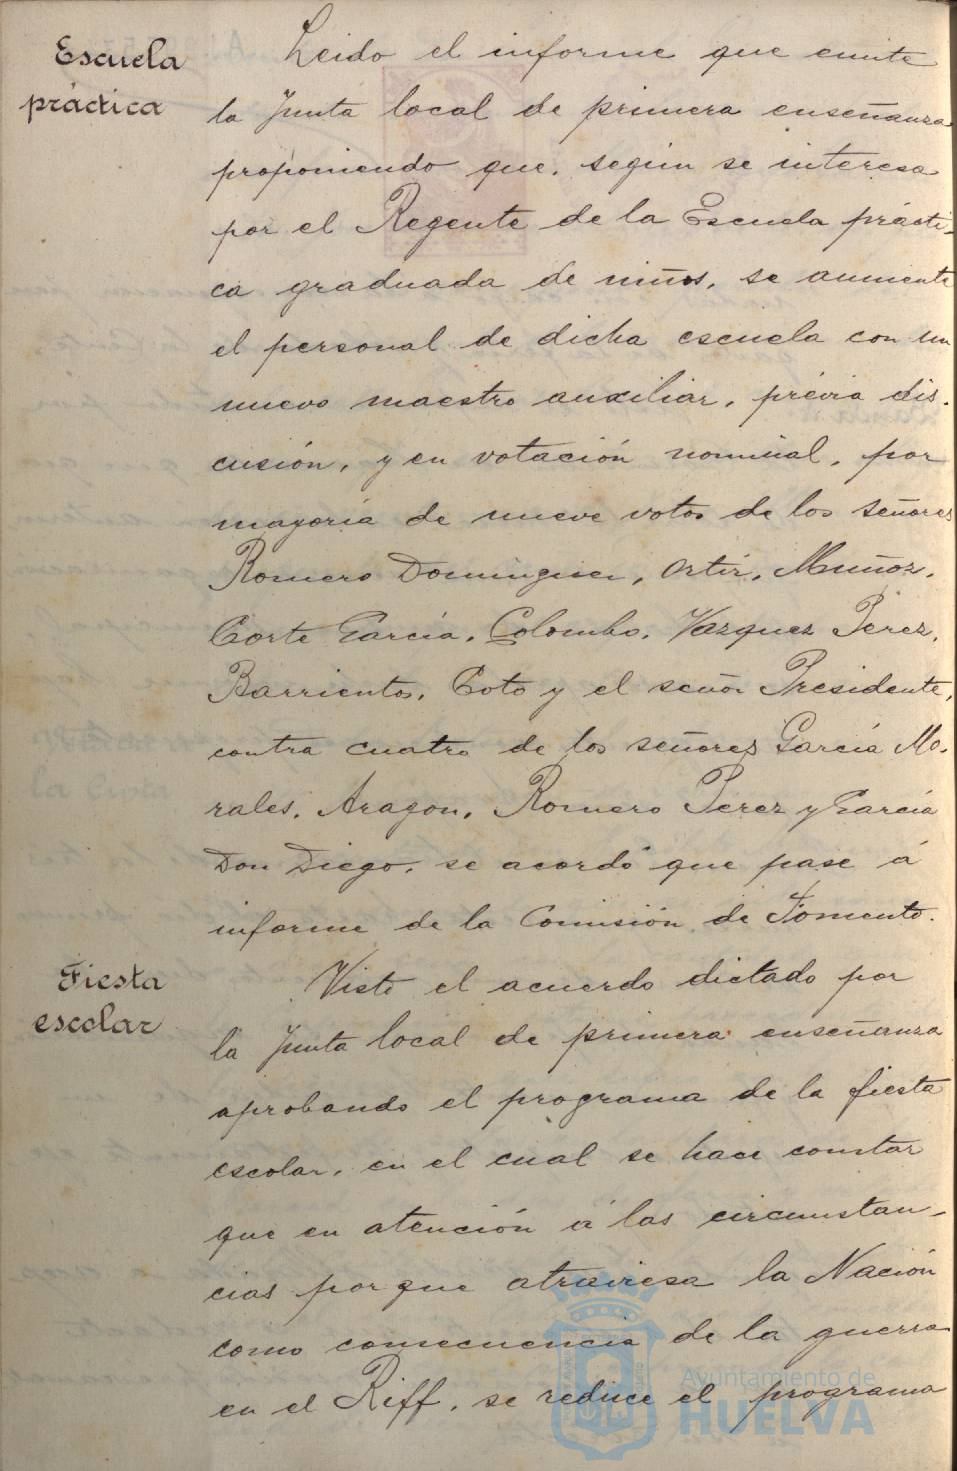 Escuela
práctica
Leido el informe que emite
la Junta local de primera enseñanza
proponiendo que, según se interesa
por el Regente de la Escuela prácti-
ca graduada de niños, se aumente
el personal de dicha escuela con un
nuevo maestro auxiliar, prévia dis-
cusión, y en votación nominal, por
mayoría de nueve votos de los señores
Romero Dominguez, Ortiz, Muñoz,
Corte García, Colombo, Vazquez Pérez,
Barrientos, Coto y el señor Presidente,
contra cuatro de los señores García Mo-
rales, Aragon, Romero Perez y García
Don Diego, se acordó que pase á
informe de la Comisión de Fomento.
Fiesta
escolar
Visto el acuerdo dictado por
la Junta local de primera enseñanza
aprobando el programa de la fiesta
escolar, en el cual se hace constar
que en atención á las circunstan-
cias porque atraviesa la Nación
como consecuencia de la guerra
en el Riff, se reduce el programa
Ayuntamiento de
HUELVA